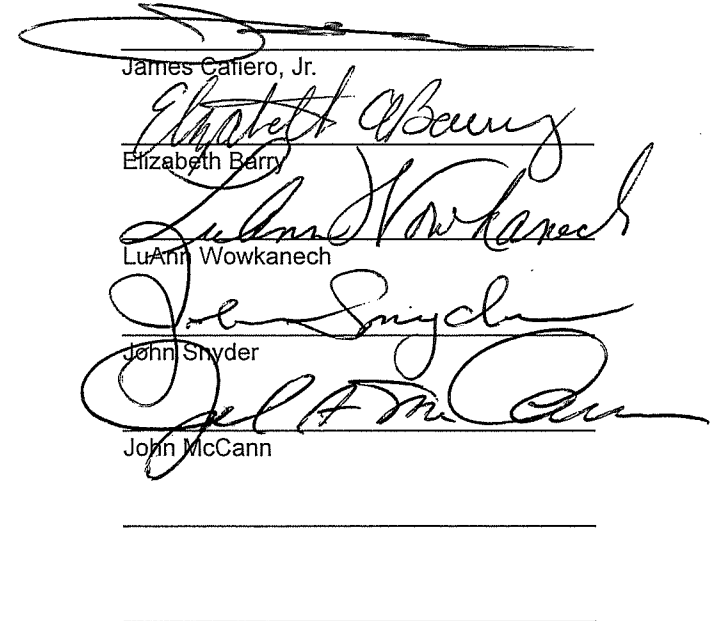 James Cafiero, Jr.
Elizabeth Barry
Elizabeth Barry
LuAnn Wowkanech
LuAnn Wowkanech
John Snyder
John Snyder
McCann
John McCann